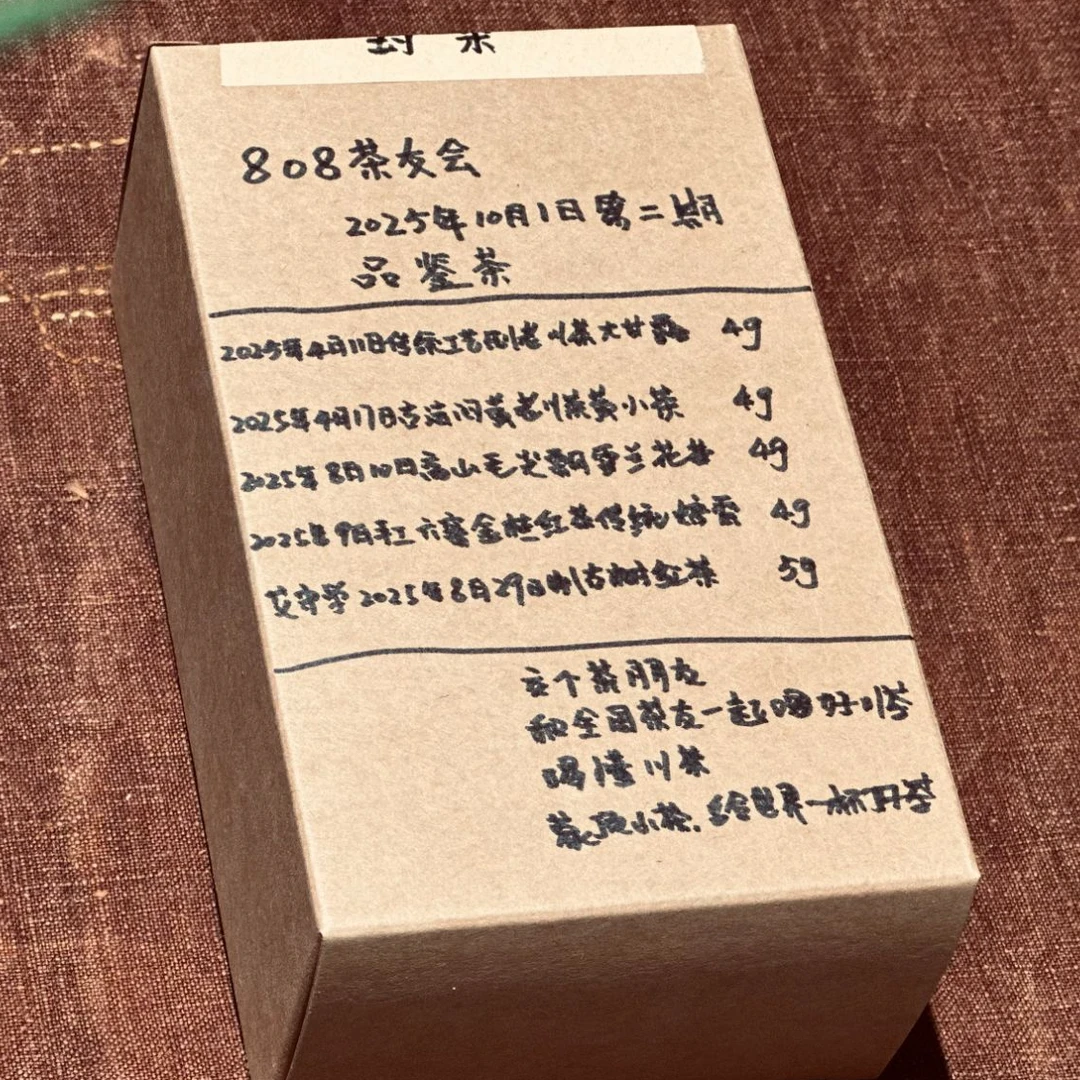 808茶友会
2025年10月1日第二期
品鉴茶
2025年4月11日传统工艺 老川茶大甘露 4g
2025年4月17日古法闷黄老川茶黄小茶 4g
2025年8月10日高山毛尖飘雪兰花 4g
2025年9月手工六窨金桂红茶传统 4g
2025年8月29日 古树红茶 5g
交个茶朋友
和全国茶友一起喝好川茶
喝懂川茶
蒙顶小茶,给世界一杯好茶